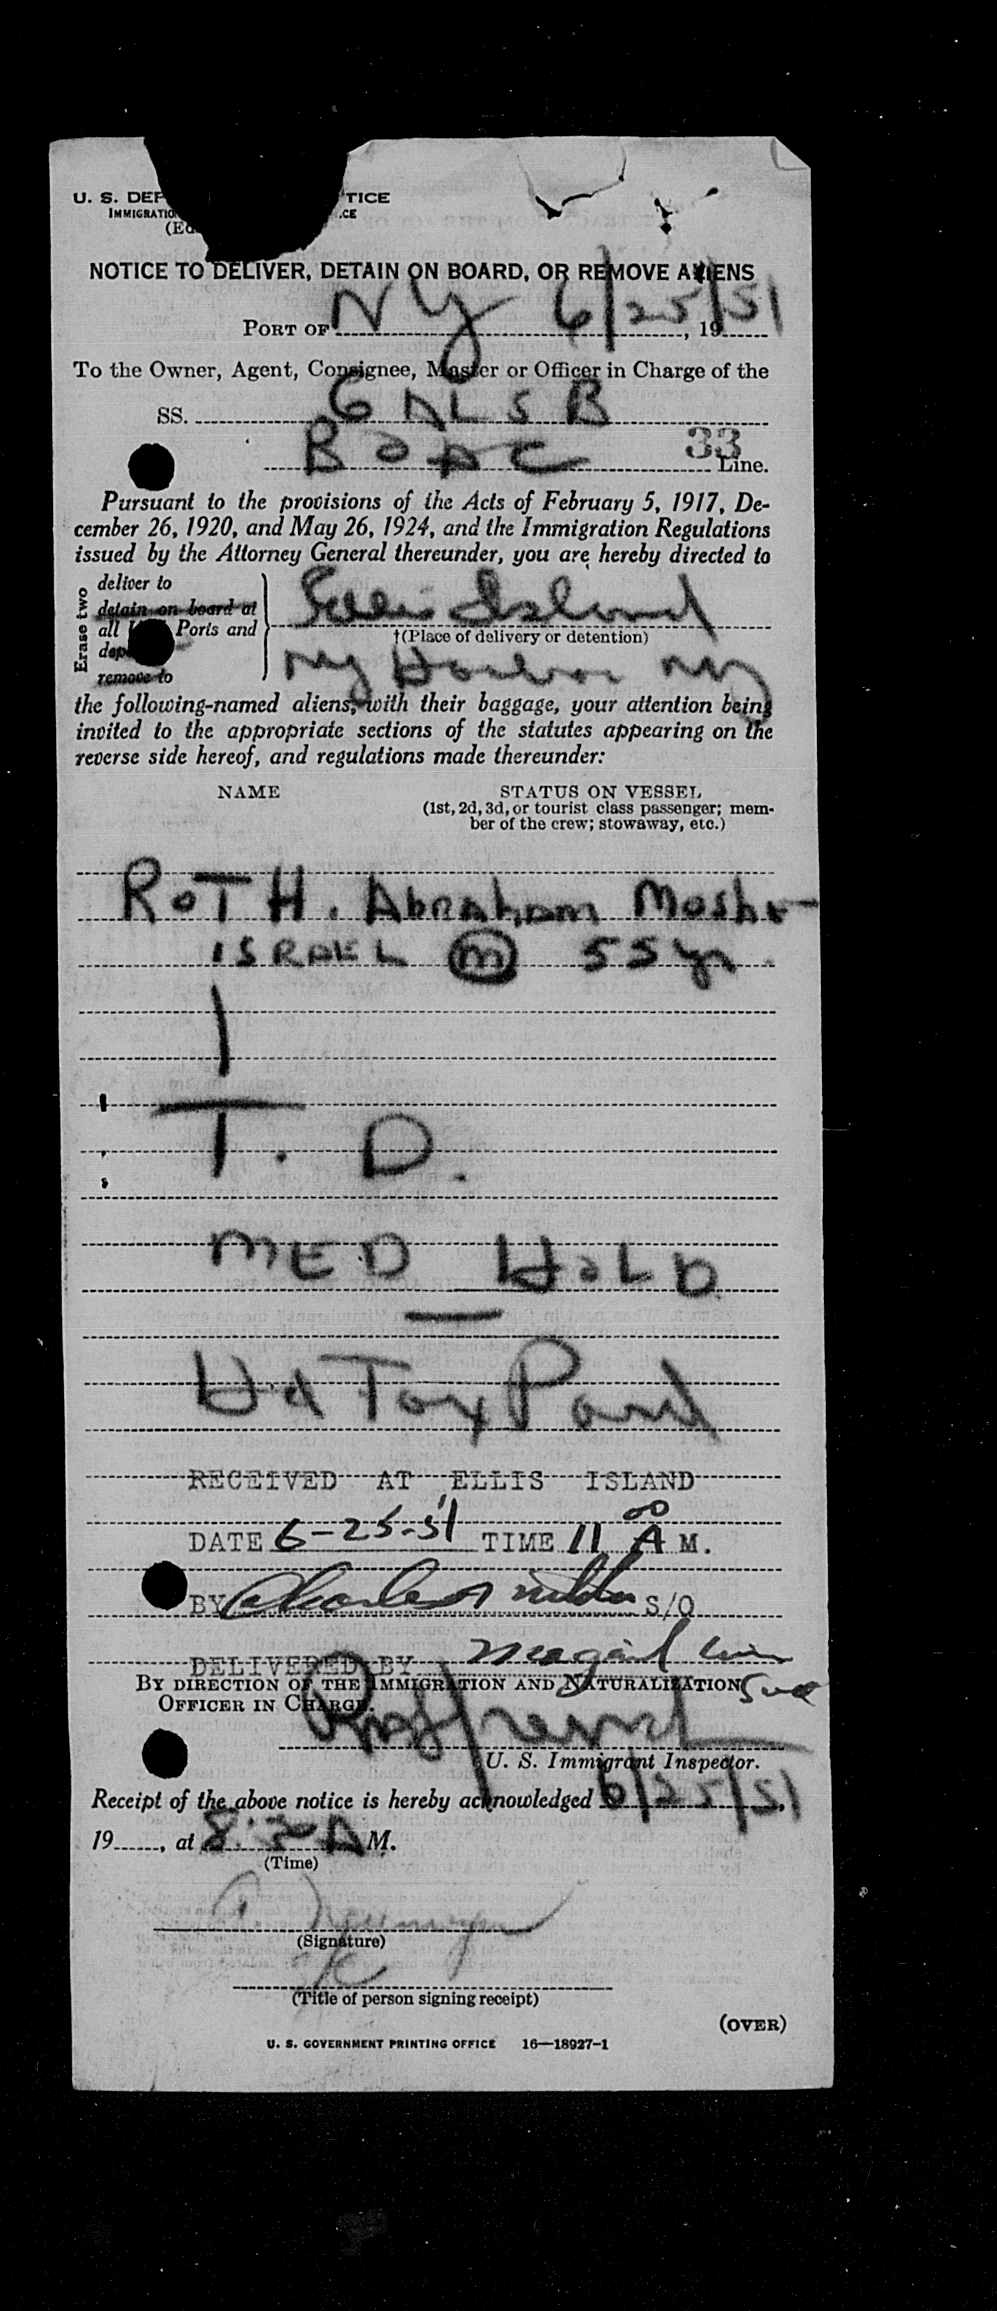 U. S. DEP TICE
IMMIGRATIO .CE
(Ed
NOTICE TO DELIVER, DETAIN ON BOARD, OR REMOVE ALIENS
PORT OF NY 6/25/51, 19
To the Owner, Agent, Consignee, Master or Officer in Charge of the
SS. GALSB
BOAC 33 Line.
Pursuant to the provisions of the Acts of February 5, 1917, De-
cember 26, 1920, and May 26, 1924, and the Immigration Regulations
issued by the Attorney General thereunder, you are hereby directed to
Erase two
deliver to
detain on board at
all Ports and
dep
remove to
Ellis Island
†(Place of delivery or detention)
NY Harbor NY
the following-named aliens, with their baggage, your attention being
invited to the appropriate sections of the statutes appearing on the
reverse side hereof, and regulations made thereunder:
NAME STATUS ON VESSEL
(1st, 2d, 3d, or tourist class passenger; mem-
ber of the crew; stowaway, etc.)
ROTH. Abraham Moshe
ISRAEL M 55 yr.
1
T. D.
MED HOLD
Hd Tax Paid
RECEIVED AT ELLIS ISLAND
DATE 6-25-51 TIME 11 00 A M.
BY Charles S/O
DELIVERED BY
BY DIRECTION OF THE IMMIGRATION AND NATURALIZATION
OFFICER IN CHARGE.
U. S. Immigrant Inspector.
Receipt of the above notice is hereby acknowledged 6/25/51,
19, at 8:30 A M.
(Time)
(Signature)
(Title of person signing receipt)
(OVER)
U. S. GOVERNMENT PRINTING OFFICE 16—18927-1